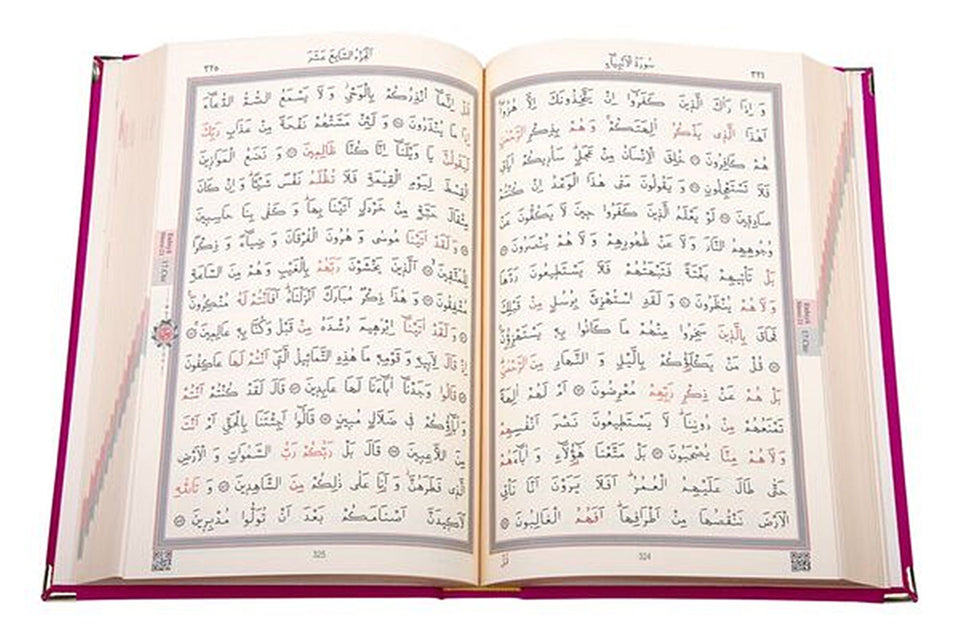 سُورَةُ الْاَنْبِيَاءِ ٣٢٤
وَاِذَا رَاٰكَ الَّذِينَ كَفَرُٓوا اِنْ يَتَّخِذُونَكَ اِلَّا هُزُوًاۜ
اَهٰذَا الَّذِي يَذْكُرُ اٰلِهَتَكُمْۚ وَهُمْ بِذِكْرِ الرَّحْمٰنِ
هُمْ كَافِرُونَ ۝ خُلِقَ الْاِنْسَانُ مِنْ عَجَلٍۜ سَاُر۪يكُمْ اٰيَاتِي
فَلَا تَسْتَعْجِلُونِ ۝ وَيَقُولُونَ مَتٰى هٰذَا الْوَعْدُ اِنْ كُنْتُمْ
صَادِقِينَ ۝ لَوْ يَعْلَمُ الَّذِينَ كَفَرُوا حِينَ لَا يَكُفُّونَ عَنْ
وُجُوهِهِمُ النَّارَ وَلَا عَنْ ظُهُورِهِمْ وَلَا هُمْ يُنْصَرُونَ ۝
بَلْ تَأْتِيهِمْ بَغْتَةً فَتَبْهَتُهُمْ فَلَا يَسْتَطِيعُونَ رَدَّهَا
وَلَا هُمْ يُنْظَرُونَ ۝ وَلَقَدِ اسْتُهْزِئَ بِرُسُلٍ مِنْ قَبْلِكَ
فَحَاقَ بِالَّذِينَ سَخِرُوا مِنْهُمْ مَا كَانُوا بِهِ يَسْتَهْزِؤُنَ۟
۝ قُلْ مَنْ يَكْلَؤُكُمْ بِالَّيْلِ وَالنَّهَارِ مِنَ الرَّحْمٰنِۜ
بَلْ هُمْ عَنْ ذِكْرِ رَبِّهِمْ مُعْرِضُونَ ۝ اَمْ لَهُمْ اٰلِهَةٌ
تَمْنَعُهُمْ مِنْ دُونِنَاۜ لَا يَسْتَطِيعُونَ نَصْرَ اَنْفُسِهِمْ
وَلَا هُمْ مِنَّا يُصْحَبُونَ ۝ بَلْ مَتَّعْنَا هٰٓؤُلَٓاءِ وَاٰبَٓاءَهُمْ
حَتّٰى طَالَ عَلَيْهِمُ الْعُمُرُۜ اَفَلَا يَرَوْنَ اَنَّا نَأْتِي
الْاَرْضَ نَنْقُصُهَا مِنْ اَطْرَافِهَاۜ اَفَهُمُ الْغَالِبُونَ ۝
324
قُلْ
الجزء السابع عشر ٣٢٥
قُلْ اِنَّمَٓا اُنْذِرُكُمْ بِالْوَحْيِۘ وَلَا يَسْمَعُ الصُّمُّ الدُّعَٓاءَ
اِذَا مَا يُنْذَرُونَ ۝ وَلَئِنْ مَسَّتْهُمْ نَفْحَةٌ مِنْ عَذَابِ رَبِّكَ
لَيَقُولُنَّ يَا وَيْلَنَٓا اِنَّا كُنَّا ظَالِمِينَ ۝ وَنَضَعُ الْمَوَازِينَ
الْقِسْطَ لِيَوْمِ الْقِيٰمَةِ فَلَا تُظْلَمُ نَفْسٌ شَيْـًٔاۜ وَاِنْ كَانَ
مِثْقَالَ حَبَّةٍ مِنْ خَرْدَلٍ اَتَيْنَا بِهَاۜ وَكَفٰى بِنَا حَاسِبِينَ
۝ وَلَقَدْ اٰتَيْنَا مُوسٰى وَهٰرُونَ الْفُرْقَانَ وَضِيَٓاءً وَذِكْرًا
لِلْمُتَّقِينَۙ ۝ اَلَّذِينَ يَخْشَوْنَ رَبَّهُمْ بِالْغَيْبِ وَهُمْ مِنَ السَّاعَةِ
مُشْفِقُونَ ۝ وَهٰذَا ذِكْرٌ مُبَارَكٌ اَنْزَلْنَاهُۜ اَفَاَنْتُمْ لَهُ مُنْكِرُونَ۟
۝ وَلَقَدْ اٰتَيْنَٓا اِبْرٰهِيمَ رُشْدَهُ مِنْ قَبْلُ وَكُنَّا بِهِ عَالِمِينَۚ ۝
اِذْ قَالَ لِاَبِيهِ وَقَوْمِهِ مَا هٰذِهِ التَّمَاثِيلُ الَّتِي اَنْتُمْ لَهَا عَاكِفُونَ
۝ قَالُوا وَجَدْنَٓا اٰبَٓاءَنَا لَهَا عَابِدِينَ ۝ قَالَ لَقَدْ كُنْتُمْ اَنْتُمْ
وَاٰبَٓاؤُكُمْ فِي ضَلَالٍ مُبِينٍ ۝ قَالُٓوا اَجِئْتَنَا بِالْحَقِّ اَمْ اَنْتَ
مِنَ اللَّاعِبِينَ ۝ قَالَ بَلْ رَبُّكُمْ رَبُّ السَّمٰوَاتِ وَالْاَرْضِ
الَّذِي فَطَرَهُنَّۘ وَاَنَا عَلٰى ذٰلِكُمْ مِنَ الشَّاهِدِينَ ۝ وَتَاللّٰهِ
لَاَكِيدَنَّ اَصْنَامَكُمْ بَعْدَ اَنْ تُوَلُّوا مُدْبِرِينَ ۝
325